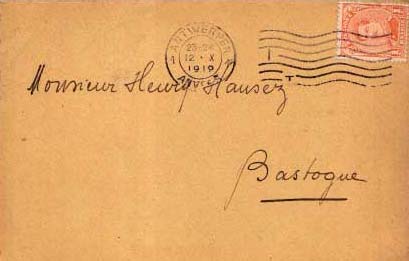 1 ANTWERPEN 1
23-24
12 · X
1919
ANVERS
Monsieur Henry Hausez
Bastogne